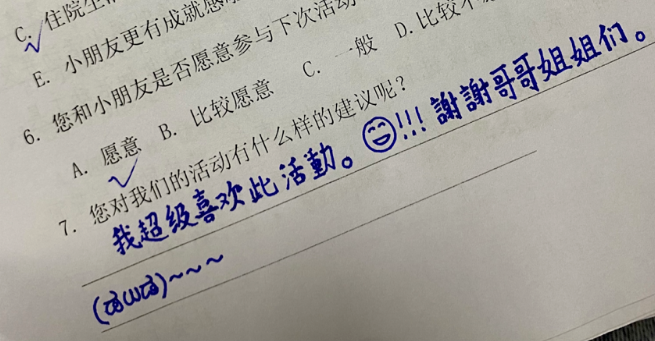 C. 住院生
E. 小朋友更有成就感
6. 您和小朋友是否愿意参与下次活动
A. 愿意 B. 比较愿意 C. 一般 D. 比较不
7. 您对我们的活动有什么样的建议呢?
我超级喜欢此活動。😄!!! 謝謝哥哥姐姐们。
~~~